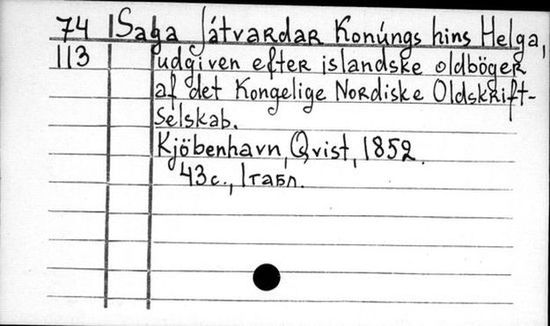 74 Saga Játvardar Konúngs hins Helga,
113 udgiven efter islandske oldböger
af det Kongelige Nordiske Oldskrift-
Selskab.
Kjöbenhavn, Qvist, 1852.
43с., 1табл.